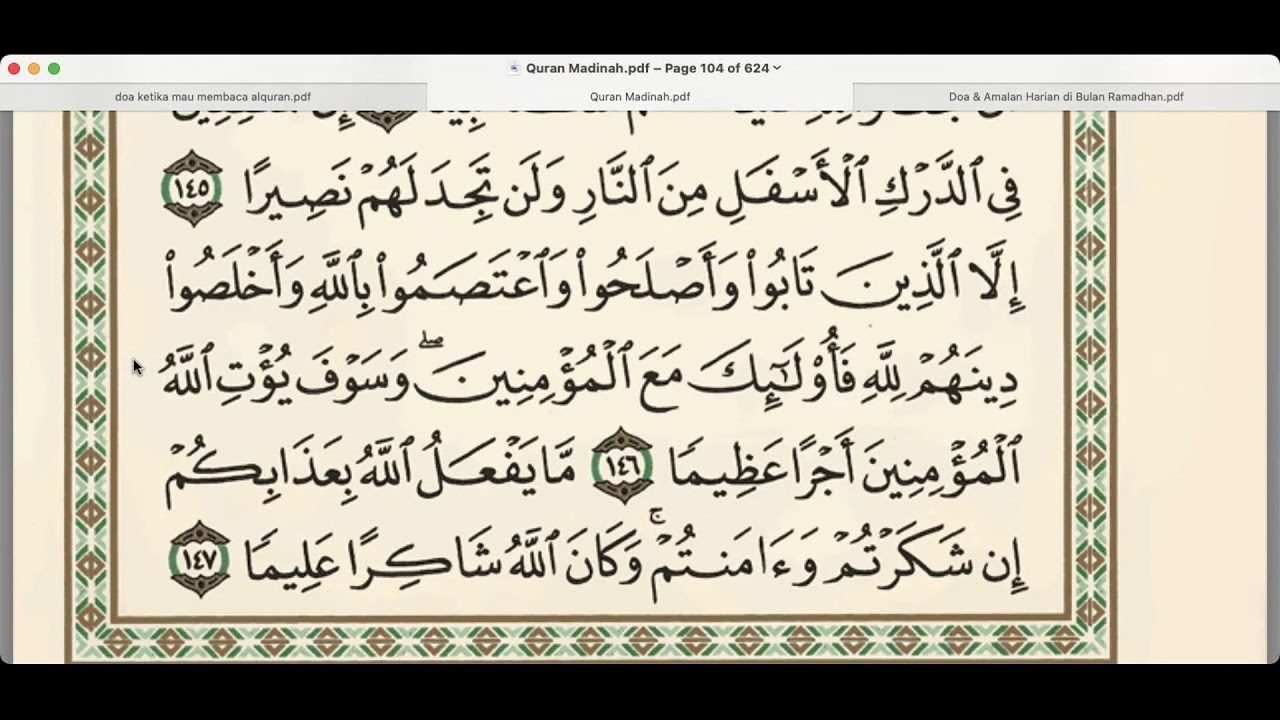 Quran Madinah.pdf – Page 104 of 624
doa ketika mau membaca alquran.pdf
Quran Madinah.pdf
Doa & Amalan Harian di Bulan Ramadhan.pdf
فِى ٱلدَّرْكِ ٱلْأَسْفَلِ مِنَ ٱلنَّارِ وَلَن تَجِدَ لَهُمْ نَصِيرًا ١٤٥
إِلَّا ٱلَّذِينَ تَابُوا۟ وَأَصْلَحُوا۟ وَٱعْتَصَمُوا۟ بِٱللَّهِ وَأَخْلَصُوا۟
دِينَهُمْ لِلَّهِ فَأُو۟لَـٰٓئِكَ مَعَ ٱلْمُؤْمِنِينَ ۖ وَسَوْفَ يُؤْتِ ٱللَّهُ
ٱلْمُؤْمِنِينَ أَجْرًا عَظِيمًا ١٤٦ مَّا يَفْعَلُ ٱللَّهُ بِعَذَابِكُمْ
إِن شَكَرْتُمْ وَءَامَنتُمْ ۚ وَكَانَ ٱللَّهُ شَاكِرًا عَلِيمًا ١٤٧